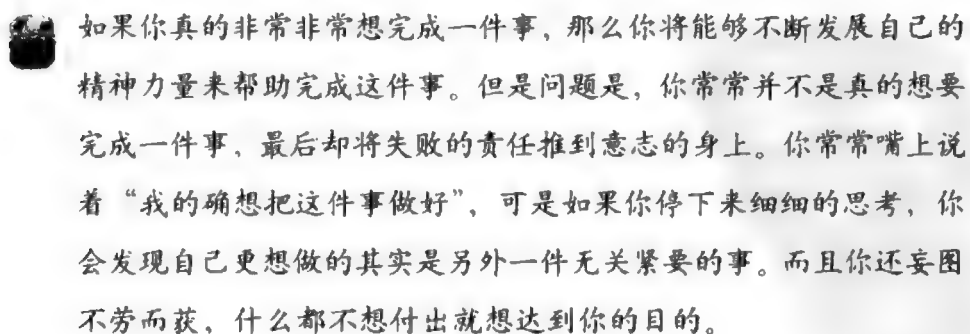 如果你真的非常非常想完成一件事，那么你将能够不断发展自己的
精神力量来帮助完成这件事。但是问题是，你常常并不是真的想要
完成一件事，最后却将失败的责任推到意志的身上。你常常嘴上说
着“我的确想把这件事做好”，可是如果你停下来细细的思考，你
会发现自己更想做的其实是另外一件无关紧要的事。而且你还妄图
不劳而获，什么都不想付出就想达到你的目的。